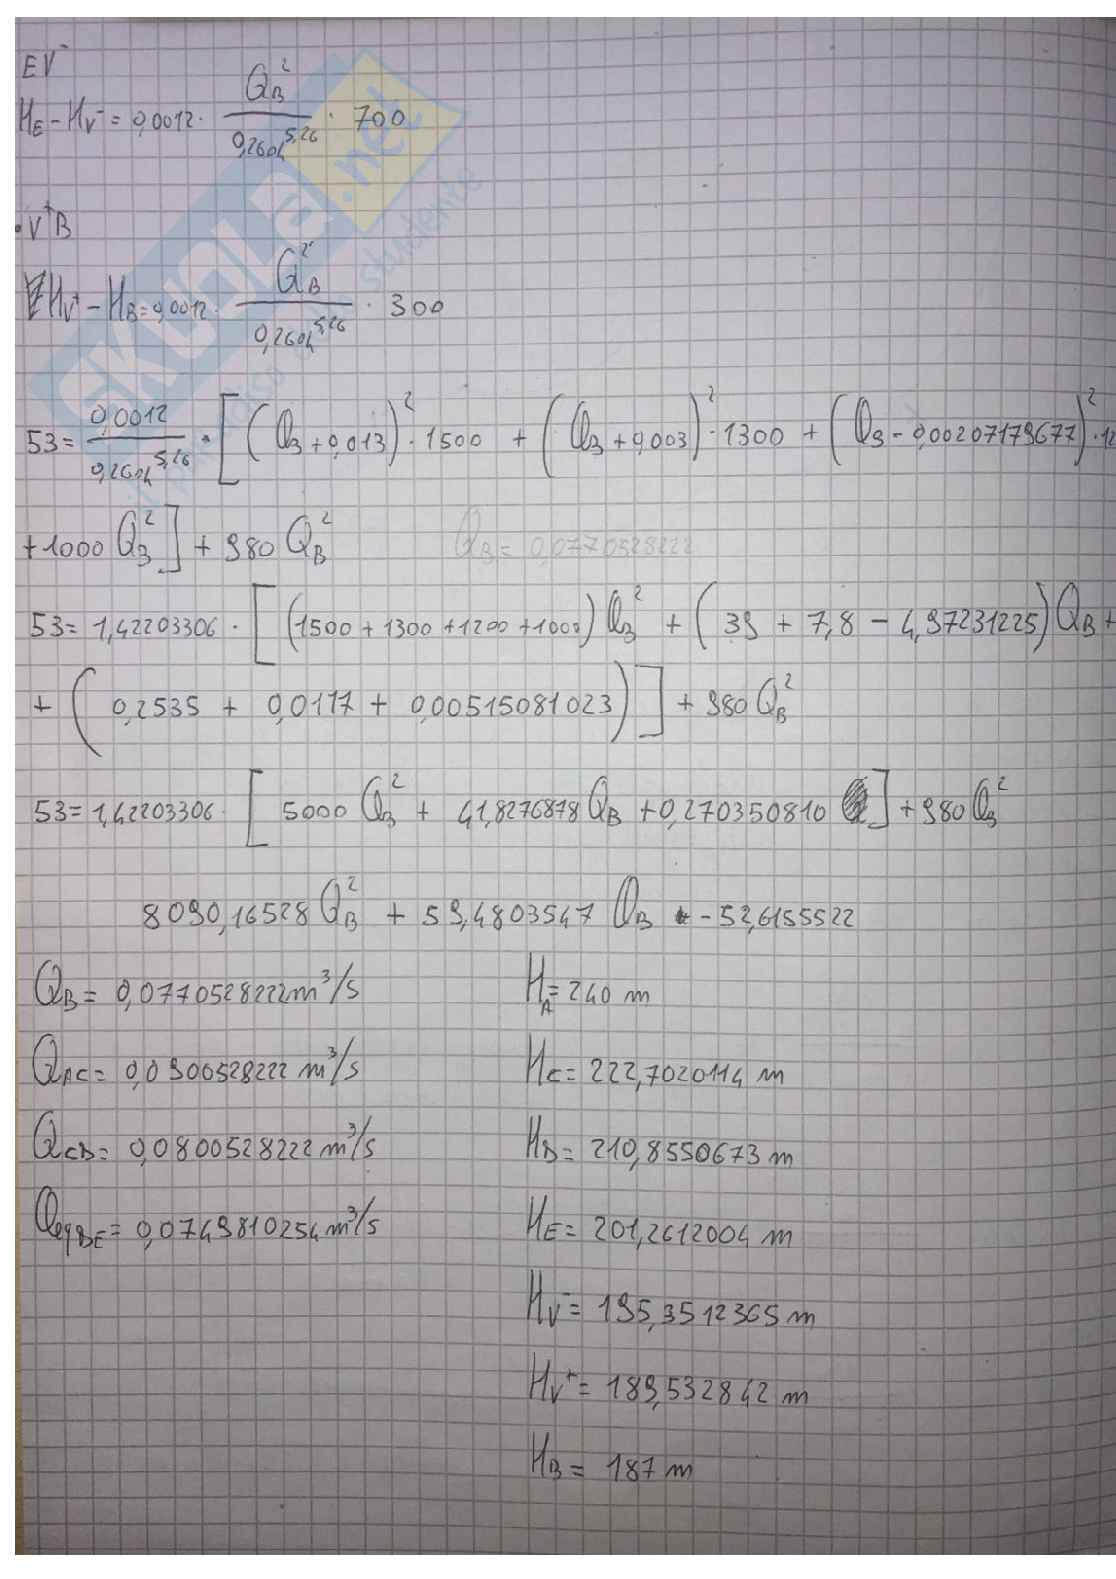 EV⁻
H_E - H_V⁻ = 0,0012 · Q_B² / 0,2604^5,26 · 700
• V⁺B
H_V⁺ - H_B = 0,0012 · Q_B² / 0,2604^5,26 · 300
53 = 0,0012 / 0,2604^5,26 · [(Q_B + 0,013)² · 1500 + (Q_B + 0,003)² · 1300 + (Q_B - 0,00207179677)² · 12
+ 1000 Q_B²] + 980 Q_B² Q_B = 0,0770528222
53 = 1,42203306 · [(1500 + 1300 + 1200 + 1000) Q_B² + (39 + 7,8 - 4,97231225) Q_B +
+ (0,2535 + 0,0117 + 0,00515081023)] + 980 Q_B²
53 = 1,42203306 · [5000 Q_B² + 41,8276878 Q_B + 0,270350810] + 980 Q_B²
8090,16528 Q_B² + 59,4803547 Q_B - 52,6155522
Q_B = 0,0770528222 m³/s H_A = 240 m
Q_AC = 0,0900528222 m³/s H_C = 222,7020114 m
Q_CD = 0,0800528222 m³/s H_D = 210,8550673 m
Q_eqDE = 0,0749810254 m³/s H_E = 201,2612004 m
H_V⁻ = 195,3512365 m
H_V⁺ = 189,532842 m
H_B = 187 m
SKUOLA.net